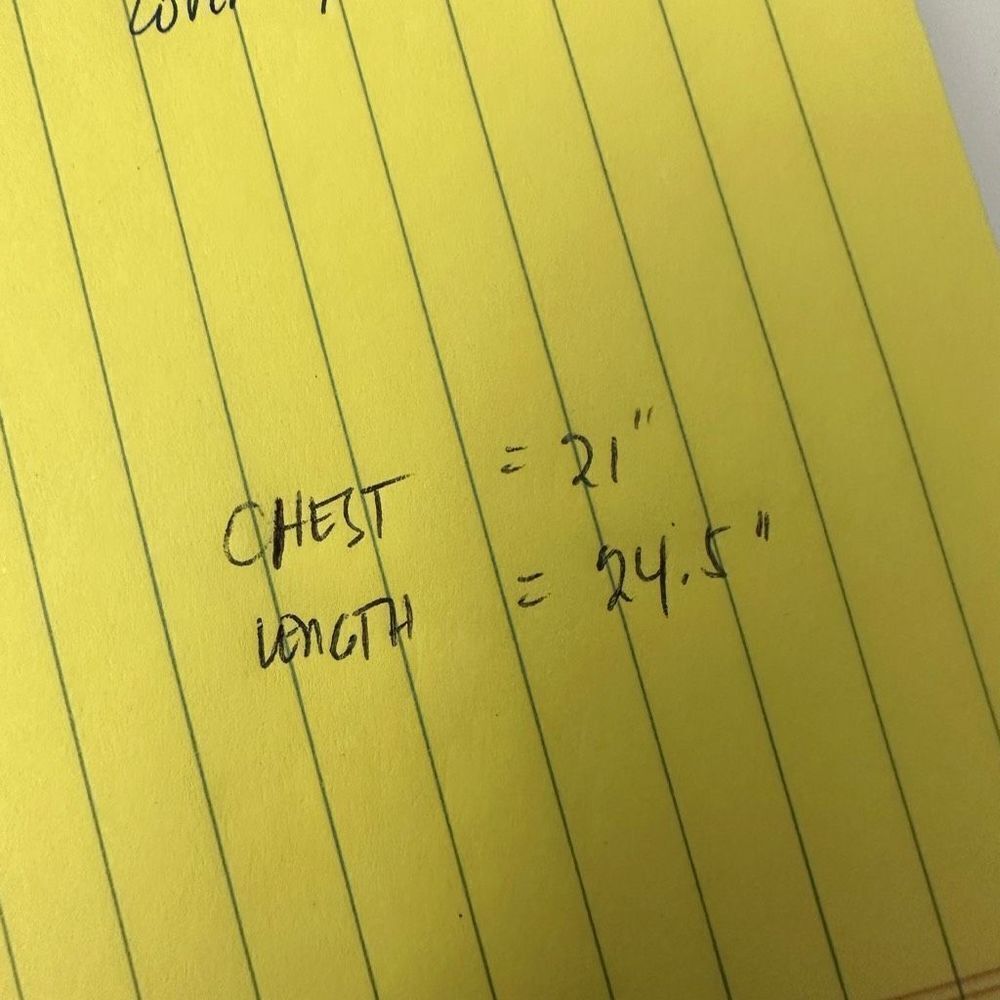 CHEST = 21"
LENGTH = 24.5"